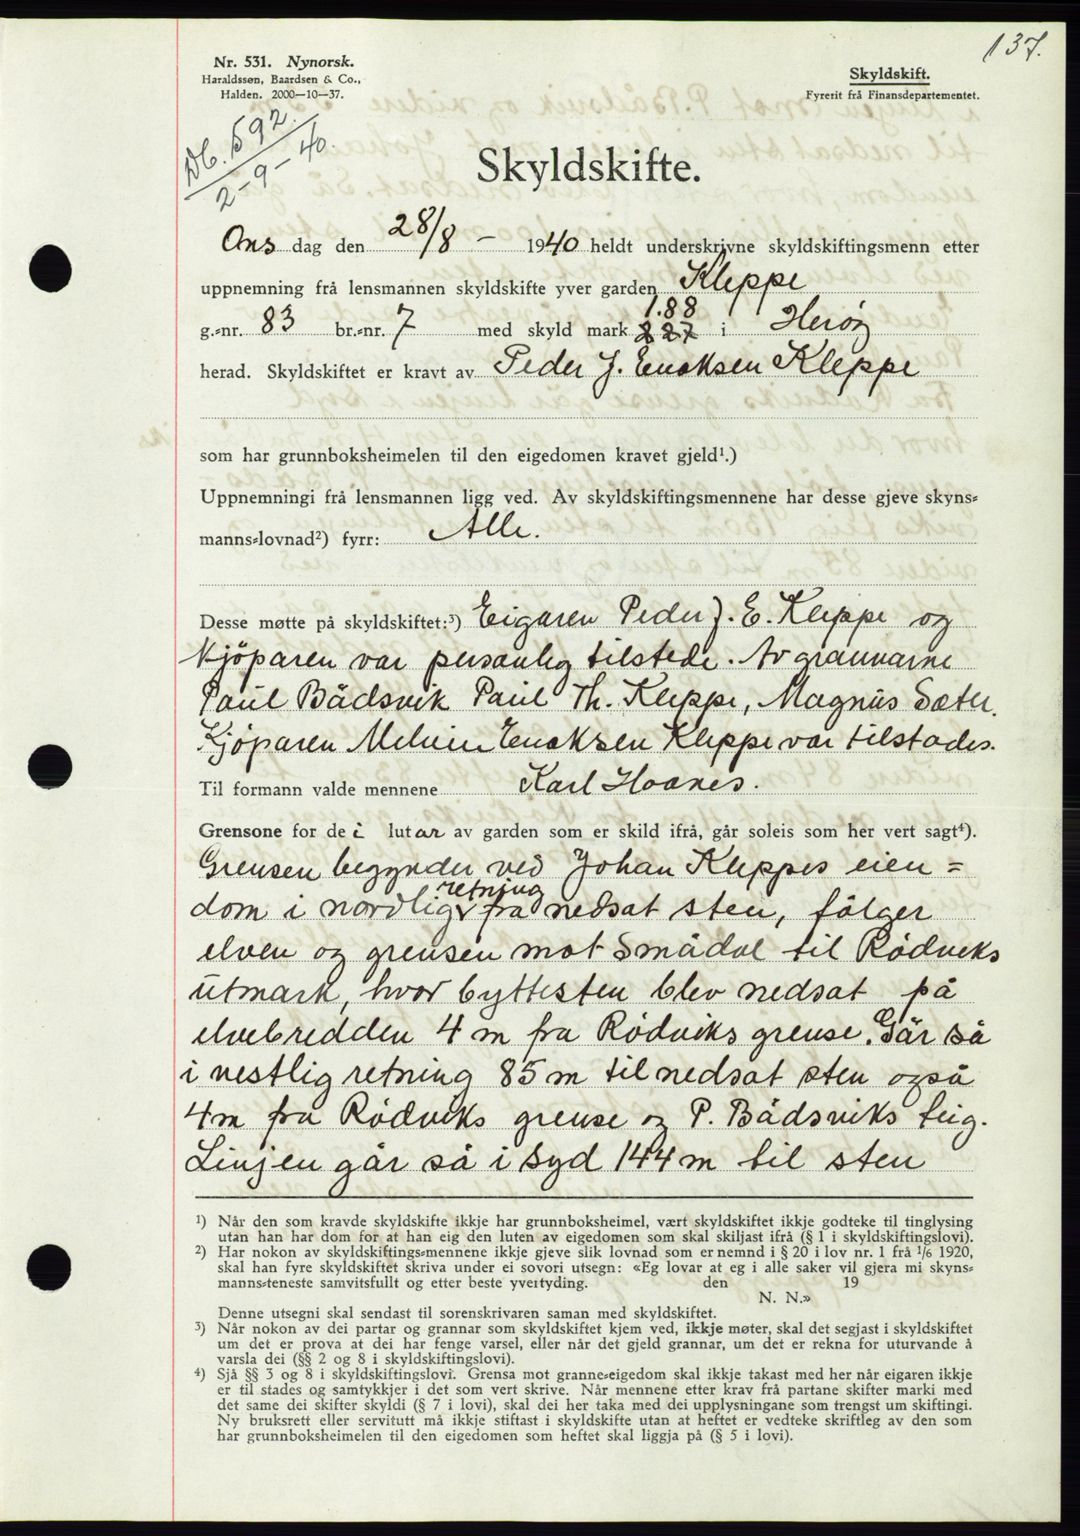 137.
Nr. 531. Nynorsk.
Haraldssøn, Baardsen & Co.,
Halden. 2000—10—37.
Skyldskift.
Fyrerit frå Finansdepartementet.
Db. 592.
2-9-40.
Skyldskifte.
Ons dag den 28/8 - 1940 heldt underskrivne skyldskiftingsmenn etter
uppnemning frå lensmannen skyldskifte yver garden Kleppe
g.-nr. 83 br.-nr. 7 med skyld mark 1.88 i Herøy
herad. Skyldskiftet er kravt av Peder J. Eriksen Kleppe
som har grunnboksheimelen til den eigedomen kravet gjeld¹.)
Uppnemningi frå lensmannen ligg ved. Av skyldskiftingsmennene har desse gjeve skyns-
manns-lovnad²) fyrr: Alle.
Desse møtte på skyldskiftet:³) Eigaren Peder J. E. Kleppe og
kjöparen var personleg tilstede. Av grannarne
Paul Bådsvik Paul Th. Kleppe, Magnus Sæter.
Kjöparen Melvin Eriksen Kleppe var tilstades.
Til formann valde mennene Karl Hoanes.
Grensone for dei lutar av garden som er skild ifrå, går soleis som her vert sagt⁴).
Grensen begynder ved Johan Kleppes eien=
dom i nordlig retning fra nedsat sten, fölger
elven og grensen mot Smådal til Rødviks
utmark, hvor byttesten blev nedsat på
elvebredden 4 m fra Rødviks grense. Går så
i vestlig retning 85 m til nedsat sten også
4 m fra Rødviks grense og P. Bådsviks teig.
Linjen går så i syd 144 m til sten
¹) Når den som kravde skyldskifte ikkje har grunnboksheimel, vært skyldskiftet ikkje godteke til tinglysing
utan han har dom for at han eig den luten av eigedomen som skal skiljast ifrå (§ 1 i skyldskiftingslovi).
²) Har nokon av skyldskiftings-mennene ikkje gjeve slik lovnad som er nemnd i § 20 i lov nr. 1 frå 1/6 1920,
skal han fyre skyldskiftet skriva under ei sovori utsegn: «Eg lovar at eg i alle saker vil gjera mi skyns-
manns-teneste samvitsfullt og etter beste yvertyding. den 19
N. N.»
Denne utsegni skal sendast til sorenskrivaren saman med skyldskiftet.
³) Når nokon av dei partar og grannar som skyldskiftet kjem ved, ikkje møter, skal det segjast i skyldskiftet
um det er prova at dei har fenge varsel, eller når det gjeld grannar, um det er rekna for uturvande å
varsla dei (§§ 2 og 8 i skyldskiftingslovi).
⁴) Sjå §§ 3 og 8 i skyldskiftingslovi. Grensa mot granne-eigedom skal ikkje takast med her når eigaren ikkje
er til stades og samtykkjer i det som vert skrive. Når mennene etter krav frå partane skifter marki med
det same dei skifter skyldi (§ 7 i lovi), skal dei her taka med dei upplysningane som trengst um skiftingi.
Ny bruksrett eller servitutt må ikkje stiftast i skyldskifte utan at heftet er vedteke skriftleg av den som
har grunnboksheimelen til den eigedomen som heftet skal liggja på (§ 5 i lovi).